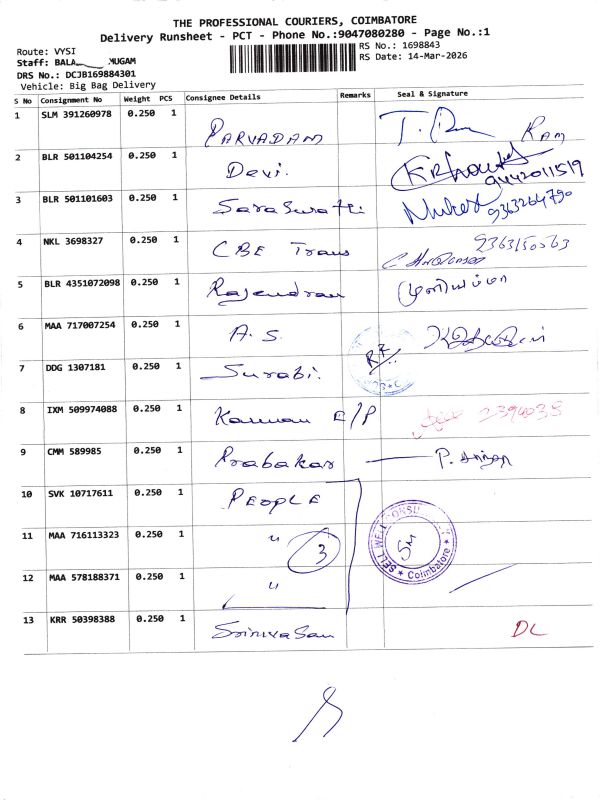 THE PROFESSIONAL COURIERS, COIMBATORE
Delivery Runsheet - PCT - Phone No.:9047080280 - Page No.:1
Route: VYSI
RS No.: 1698843
Staff: BALA MUGAM
RS Date: 14-Mar-2026
DRS No.: DCJB169884301
Vehicle: Big Bag Delivery
S No Consignment No Weight PCS Consignee Details Remarks Seal & Signature
1 SLM 391260978 0.250 1 PARVADAM RAM
2 BLR 501104254 0.250 1 Devi. 9442011519
3 BLR 501101603 0.250 1 Saraswathi 9363264790
4 NKL 3698327 0.250 1 CBE Trans
5 BLR 4351072098 0.250 1 Rajendran முனியம்மா
6 MAA 717007254 0.250 1 A.S.
7 DDG 1307181 0.250 1 Surabi.
8 IXM 509974088 0.250 1 Kannan E/P 2394038
9 CMM 589985 0.250 1 Prabakar
10 SVK 10717611 0.250 1 PEOPLE
11 MAA 716113323 0.250 1 " 3
SELL WELL CONSU
Coimbatore
12 MAA 578188371 0.250 1 "
13 KRR 50398388 0.250 1 Srinivasan DL